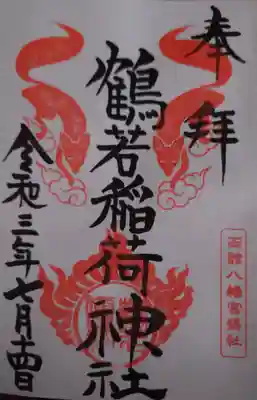 奉拝
鶴若稲荷神社
令和三年七月十四日
函館八幡宮境内社